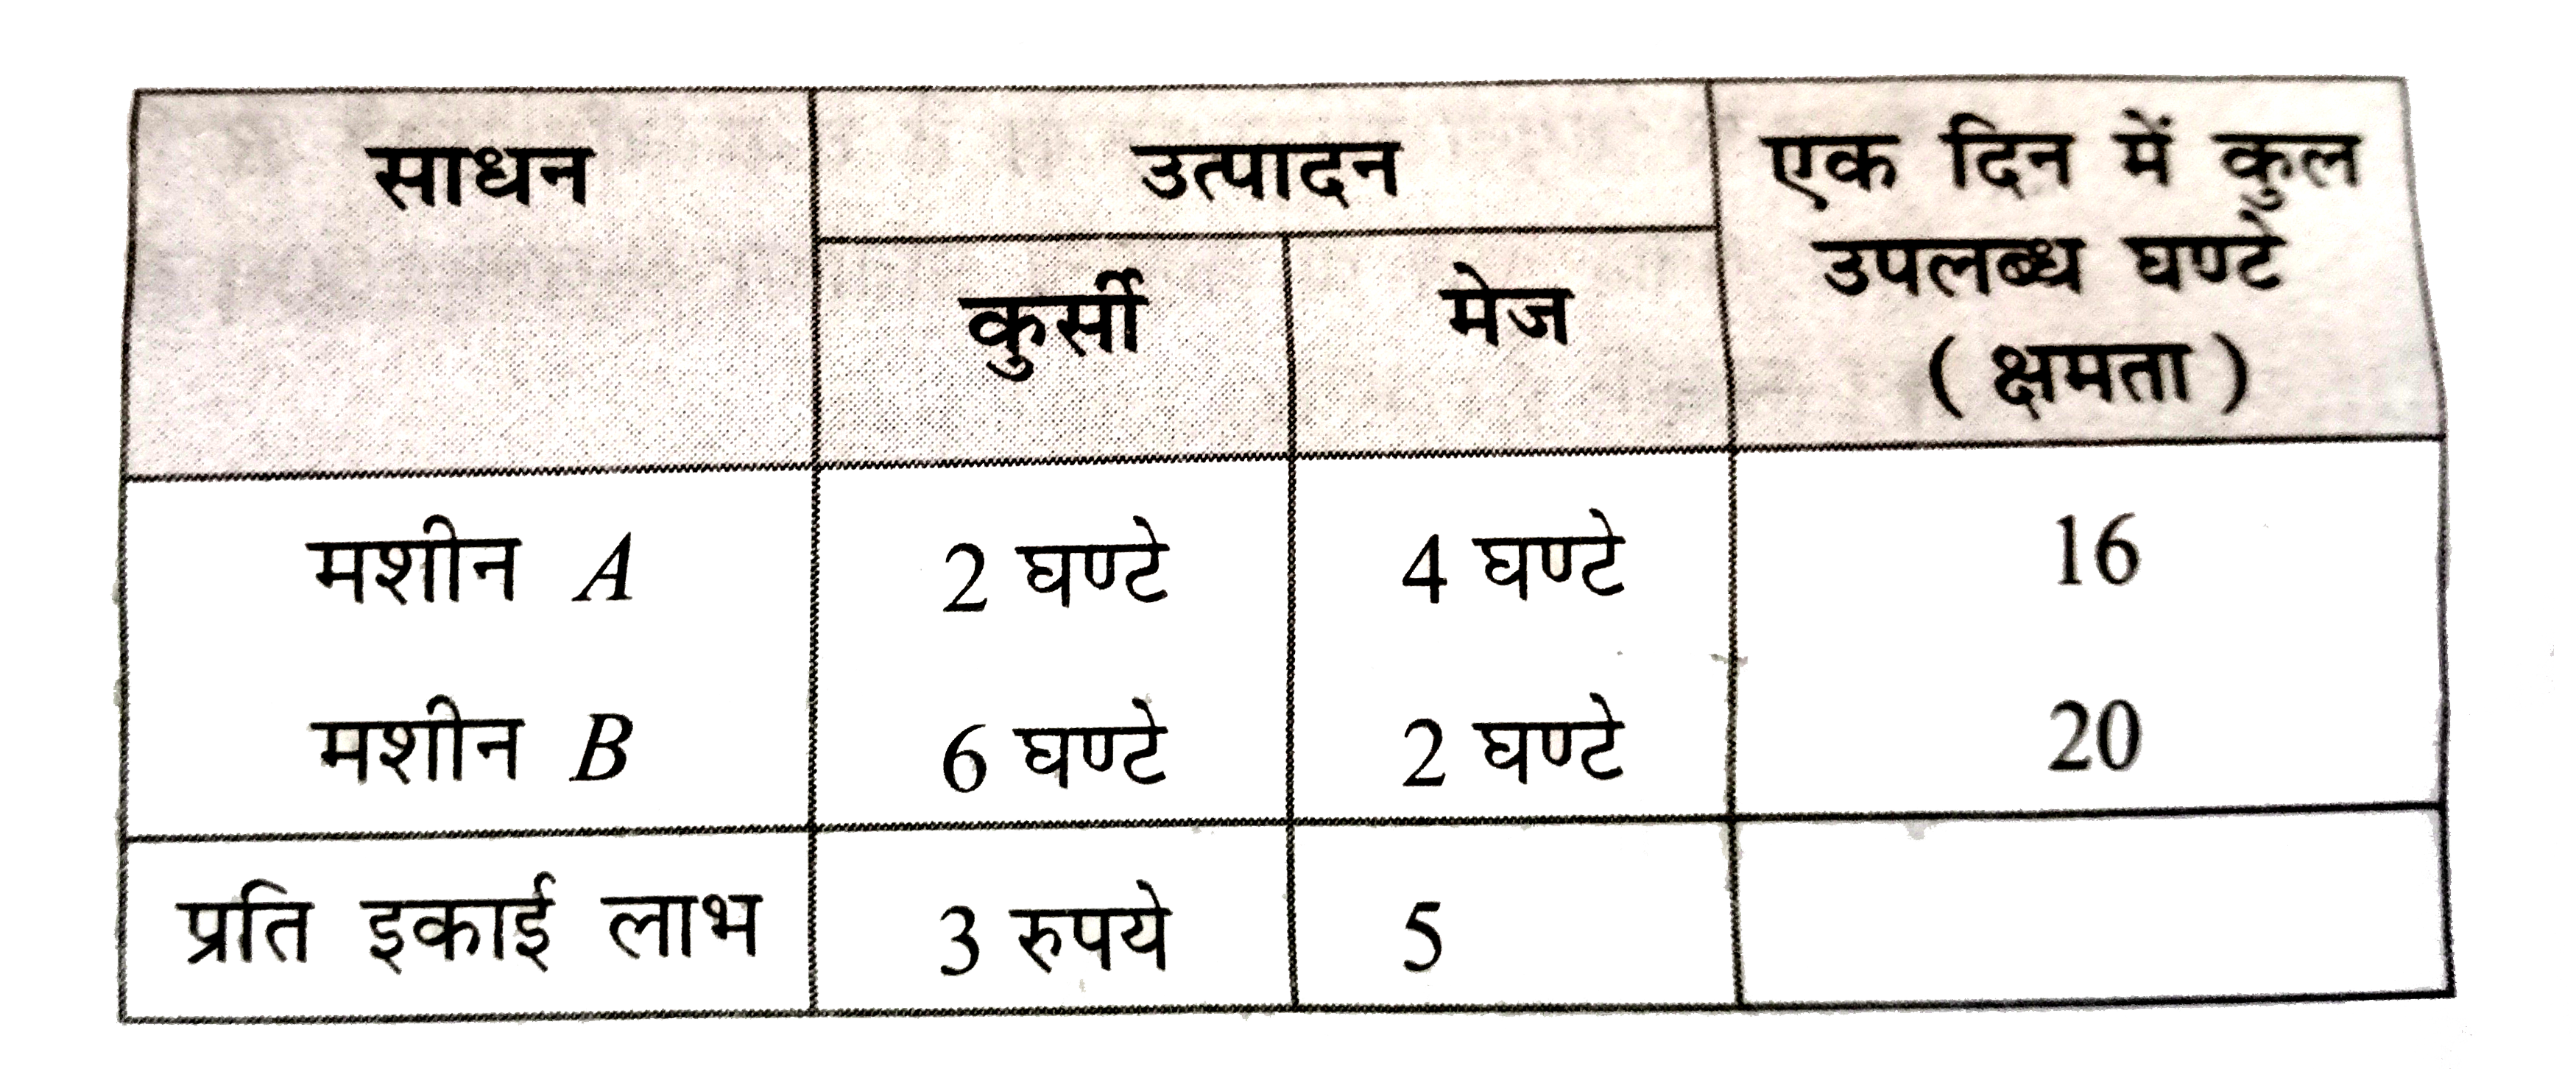 साधन
उत्पादन
एक दिन में कुल
उपलब्ध घण्टे
( क्षमता )
कुर्सी
मेज
मशीन A
2 घण्टे
4 घण्टे
16
मशीन B
6 घण्टे
2 घण्टे
20
प्रति इकाई लाभ
3 रुपये
5